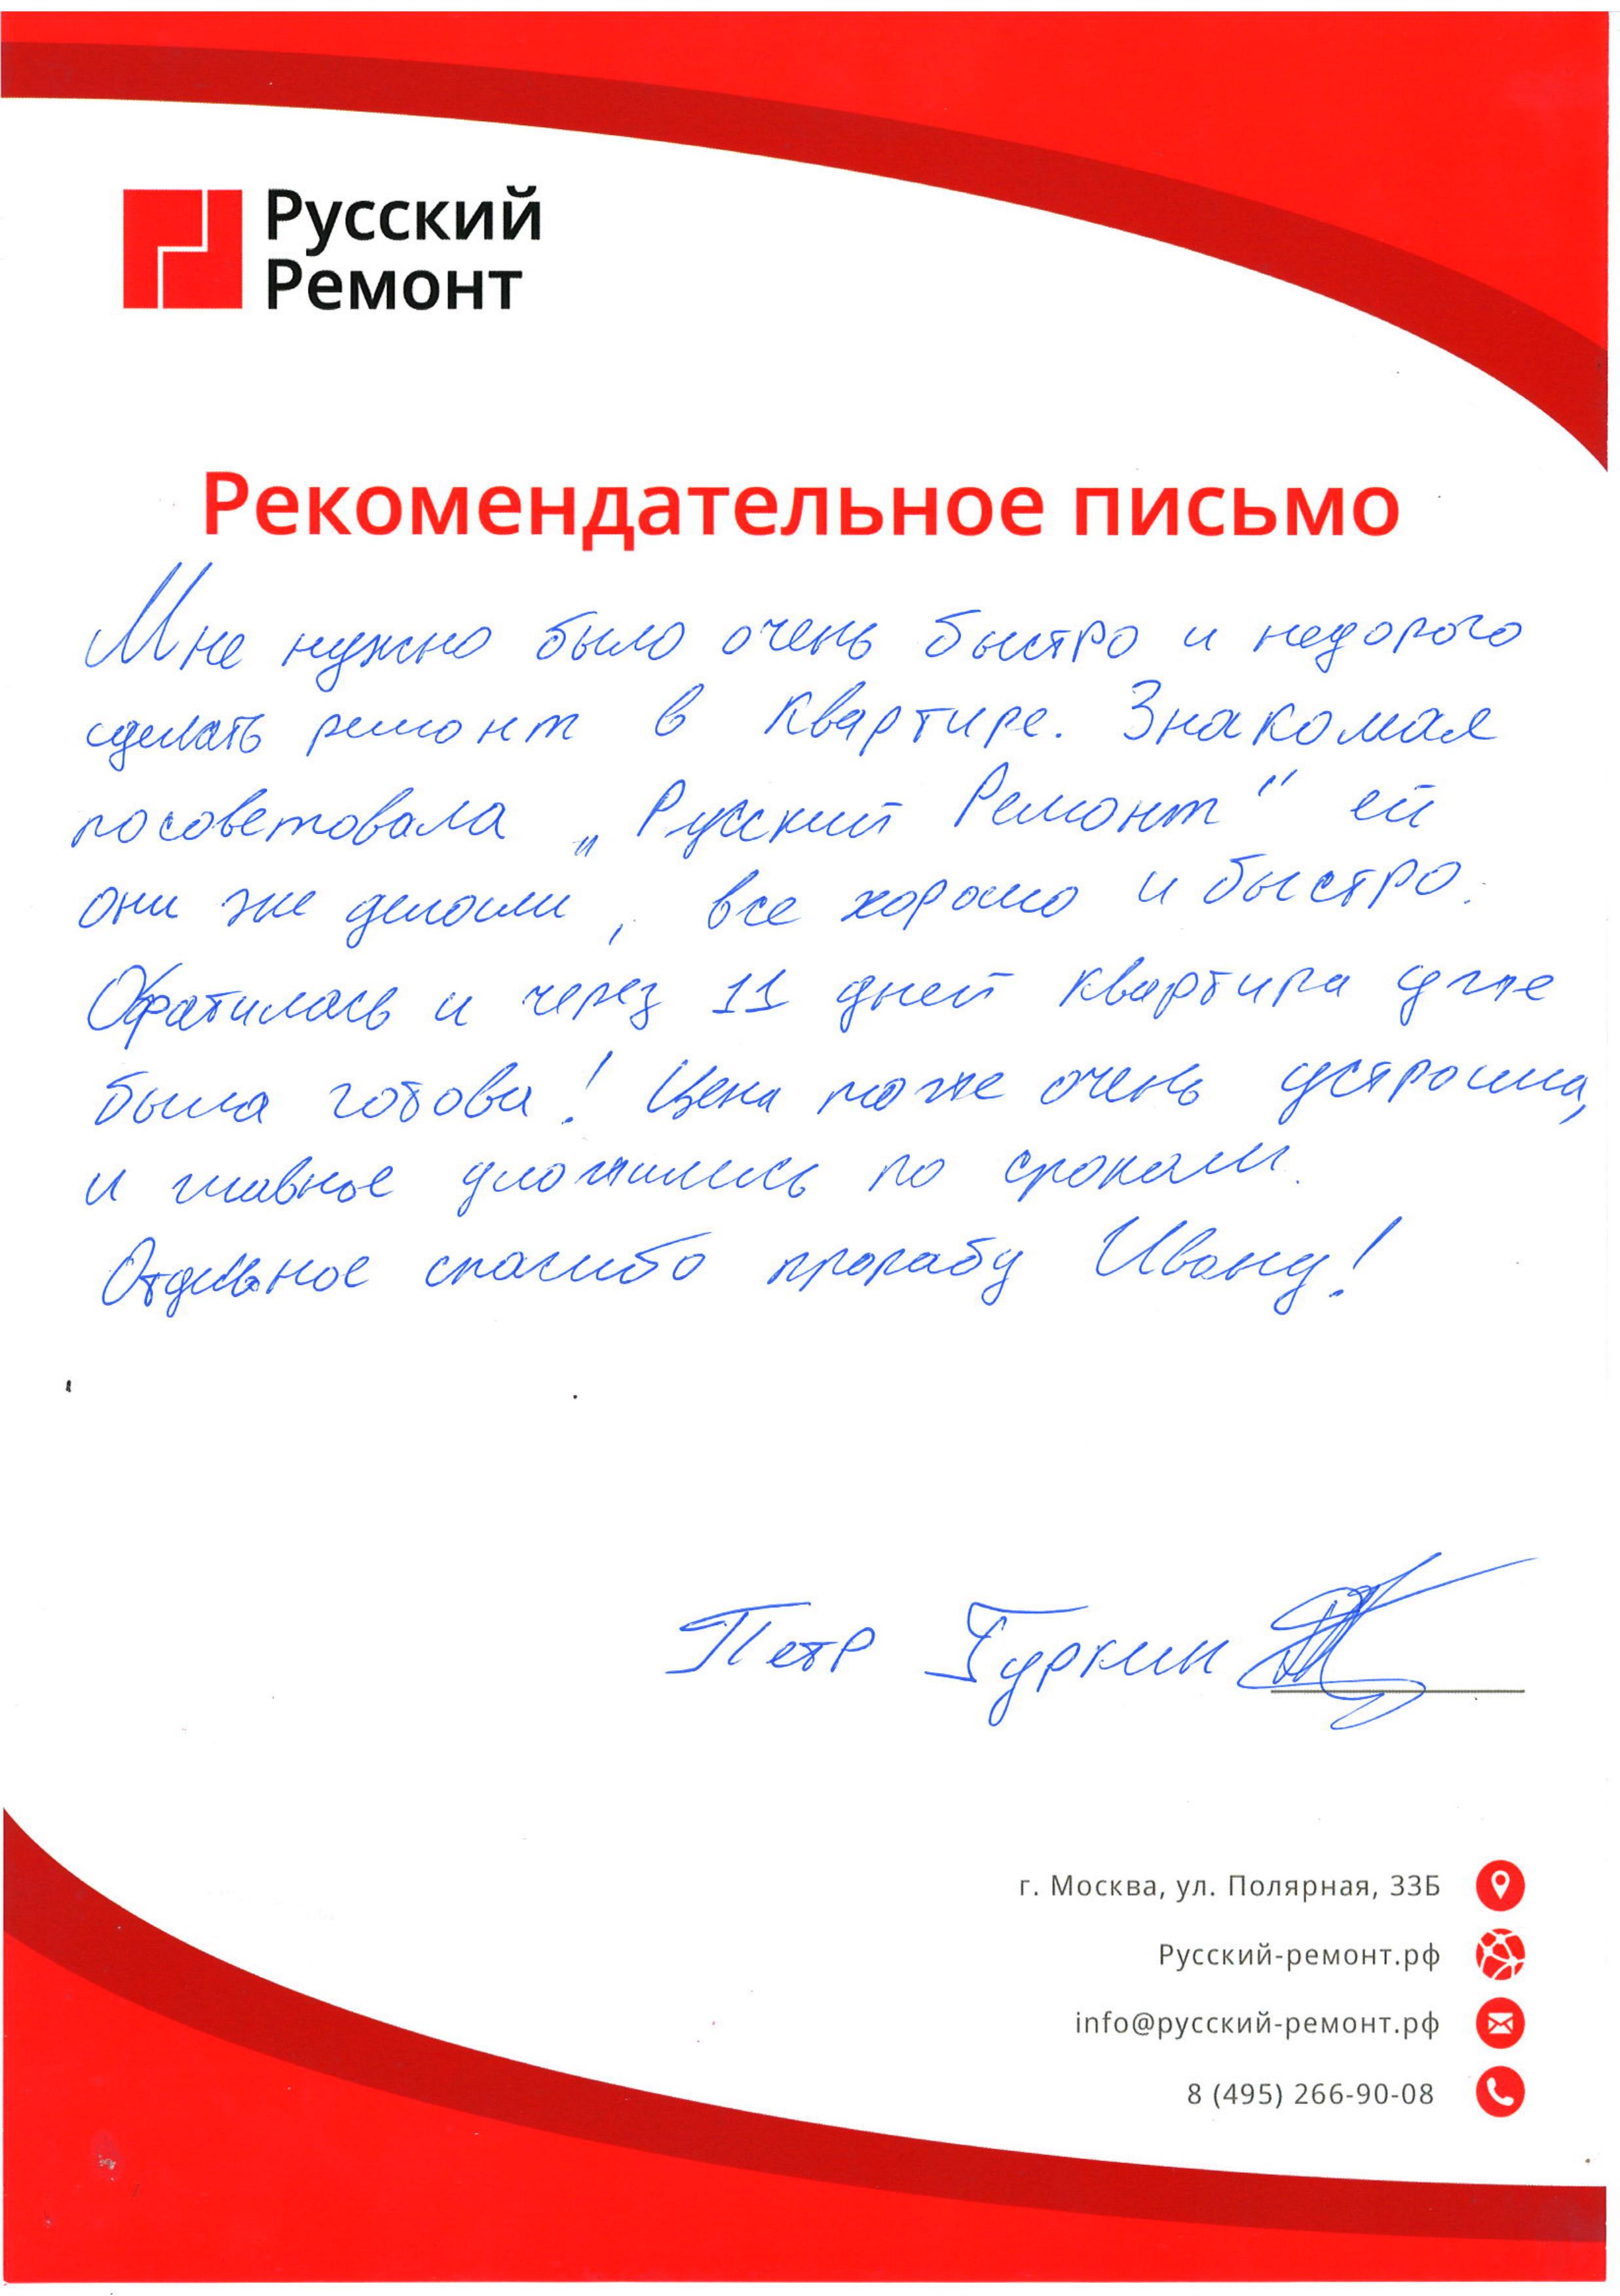 Русский
Ремонт
Рекомендательное письмо
Мне нужно было очень быстро и недорого
сделать ремонт в квартире. Знакомая
посоветовала „Русский Ремонт" ей
они же делали, все хорошо и быстро.
Обратилась и через 11 дней квартира уже
была готова! Цена тоже очень устроила,
и главное уложились по срокам.
Отдельное спасибо прорабу Ивану!
Петр Гуркин
г. Москва, ул. Полярная, 33Б
Русский-ремонт.рф
info@русский-ремонт.рф
8 (495) 266-90-08